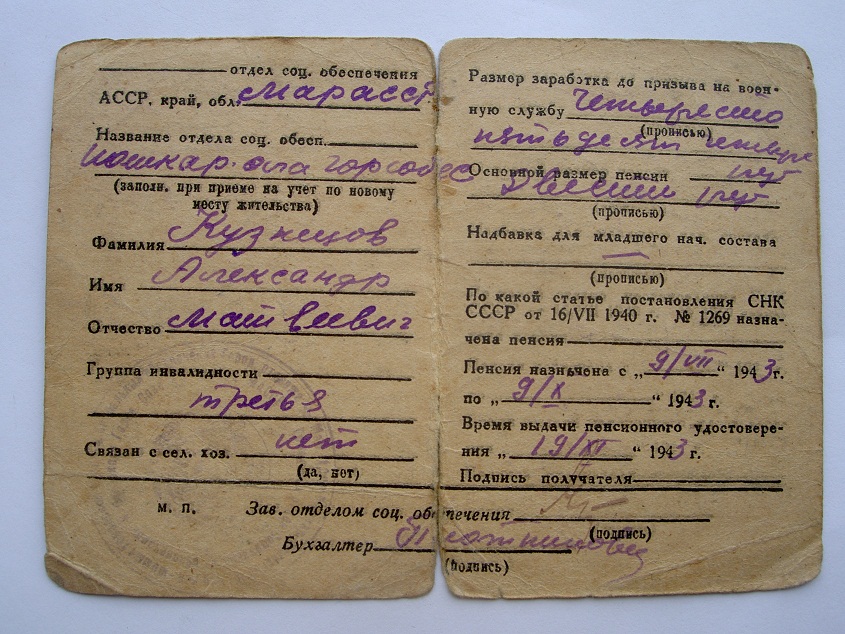 отдел соц. обеспечения
АССР, край, обл. Марасср
Название отдела соц. обесп.
Йошкар-ола горсобес
(заполн. при приеме на учет по новому
месту жительства)
Фамилия Кузнецов
Имя Александр
Отчество Матвеевич
Группа инвалидности
третья
Связан с сел. хоз. нет
(да, нет)
м. п. Зав. отделом соц. обеспечения
(подпись)
Бухгалтер
(подпись)
Размер заработка до призыва на воен-
ную службу Четыреста
(прописью)
пятьдесят четыре
Основной размер пенсии руб
Двести руб
(прописью)
Надбавка для младшего нач. состава
—
(прописью)
По какой статье постановления СНК
СССР от 16/VII 1940 г. № 1269 назна-
чена пенсия
Пенсия назначена с „9/VII“ 1943 г.
по „9/X“ 1943 г.
Время выдачи пенсионного удостовере-
ния „19/XI“ 1943 г.
Подпись получателя